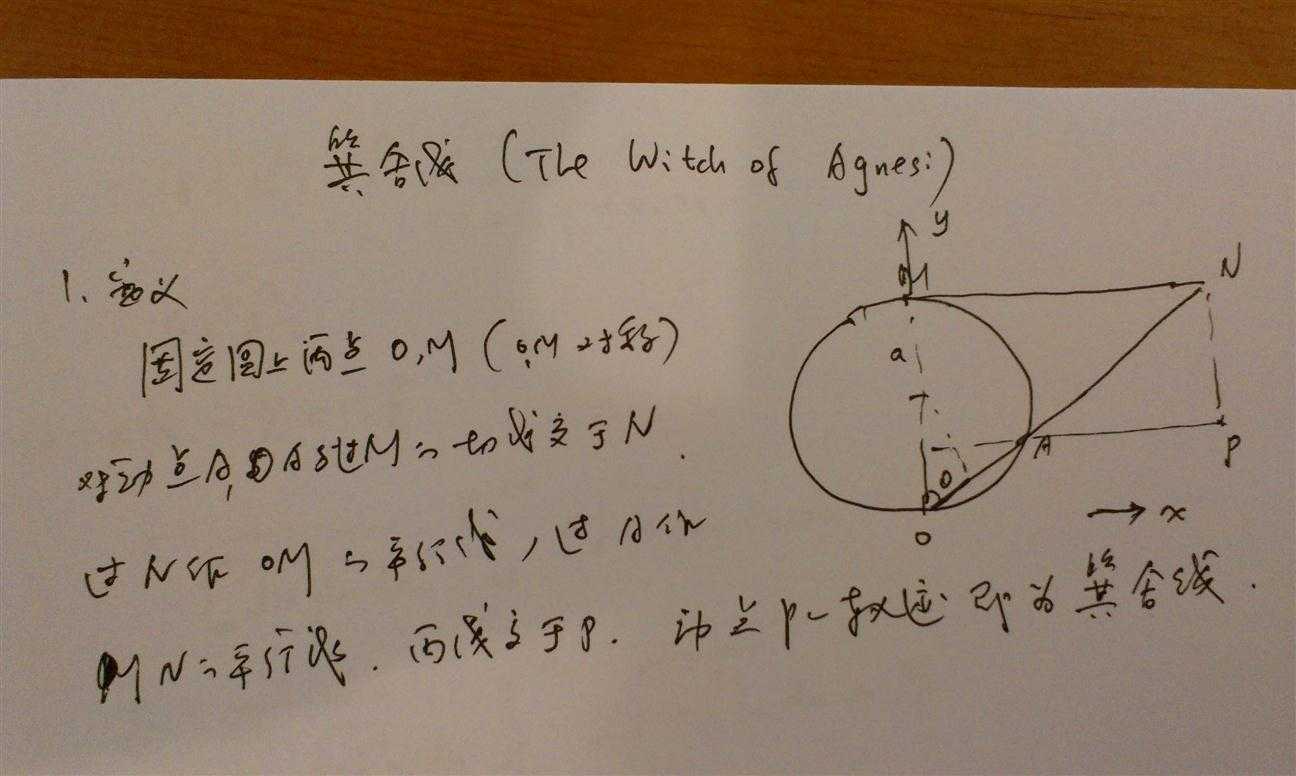 箕舌线 (The Witch of Agnesi)
1. 定义
固定圆上两点 O,M (O,M 对称)
对动点A, OA与过M的切线交于N.
过N作OM的平行线, 过A作
MN的平行线. 两线交于P. 动点P的轨迹即为箕舌线.
y
M
N
a
A
P
θ
O
x